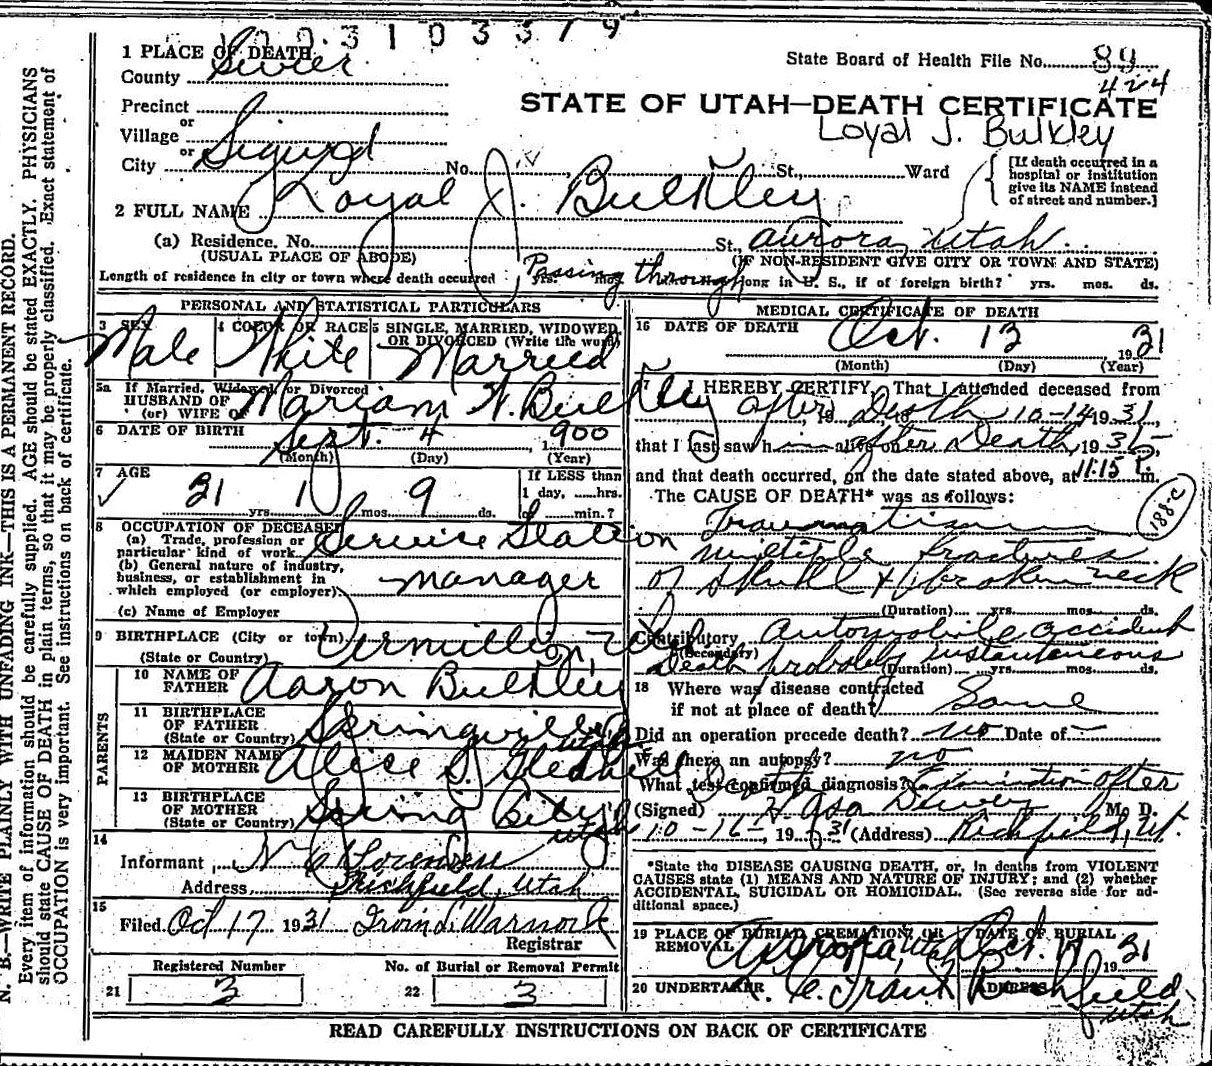 1003103379
1 PLACE OF DEATH
State Board of Health File No. 89
424
County Sevier
STATE OF UTAH—DEATH CERTIFICATE
Precinct
or
Loyal J. Bulkley
Village
or
City Sigurd No. St., Ward
[If death occurred in a
hospital or institution
give its NAME instead
of street and number.]
2 FULL NAME Loyal J. Bulkley
(a) Residence. No. St., Aurora, Utah.
(USUAL PLACE OF ABODE) (IF NON-RESIDENT GIVE CITY OR TOWN AND STATE)
Length of residence in city or town where death occurred yrs. mos. Passing through long in U. S., if of foreign birth? yrs. mos. ds.
PERSONAL AND STATISTICAL PARTICULARS
3 SEX 4 COLOR OR RACE 5 SINGLE, MARRIED, WIDOWED,
OR DIVORCED (Write the word)
Male White Married
5a If Married, Widowed, or Divorced
HUSBAND OF
(or) WIFE OF Mariam N. Bulkley
6 DATE OF BIRTH Sept. 4 1900
(Month) (Day) (Year)
7 AGE If LESS than
1 day, ......hrs.
31 yrs. 1 mos. 9 ds. or ......min.?
8 OCCUPATION OF DECEASED
(a) Trade, profession or
particular kind of work Service Station
(b) General nature of industry,
business, or establishment in
which employed (or employer) manager
(c) Name of Employer
9 BIRTHPLACE (City or town) Vermillion, Utah
(State or Country)
PARENTS
10 NAME OF
FATHER Aaron Bulkley
11 BIRTHPLACE
OF FATHER
(State or Country) Springville, Utah
12 MAIDEN NAME
OF MOTHER Alice S. Gledhill
13 BIRTHPLACE
OF MOTHER
(State or Country) Spring City, Utah
14
Informant N C Sorensen
Address Richfield, Utah
15
Filed Oct 17 1931 Irvin L. Warnock
Registrar
Registered Number No. of Burial or Removal Permit
21 3 22 3
MEDICAL CERTIFICATE OF DEATH
16 DATE OF DEATH Oct. 13 1931
(Month) (Day) (Year)
17 I HEREBY CERTIFY, That I attended deceased from
after Death 10-14 1931,
that I last saw h alive on after Death, 1931,
and that death occurred, on the date stated above, at 11:15 P. m.
The CAUSE OF DEATH* was as follows:
188-c
Traumatism
multiple fractures
of skull & broken neck
(Duration) yrs. mos. ds.
Contributory Automobile accident
(Secondary)
Death probably instantaneous
(Duration) yrs. mos. ds.
18 Where was disease contracted
if not at place of death? Same
Did an operation precede death? no Date of —
Was there an autopsy? no
What test confirmed diagnosis? Examination after Death
(Signed) H. Asa Dewey M. D.
10-16-, 1931 (Address) Richfield, Ut.
*State the DISEASE CAUSING DEATH, or, in deaths from VIOLENT
CAUSES state (1) MEANS AND NATURE OF INJURY; and (2) whether
ACCIDENTAL, SUICIDAL OR HOMICIDAL. (See reverse side for ad-
ditional space.)
19 PLACE OF BURIAL, CREMATION, OR DATE OF BURIAL
REMOVAL Aurora, Utah Oct. 17 1931
20 UNDERTAKER C. Frank ADDRESS Richfield, Utah
READ CAREFULLY INSTRUCTIONS ON BACK OF CERTIFICATE
N. B.—WRITE PLAINLY WITH UNFADING INK—THIS IS A PERMANENT RECORD.
Every item of information should be carefully supplied. AGE should be stated EXACTLY. PHYSICIANS
should state CAUSE OF DEATH in plain terms, so that it may be properly classified. Exact statement of
OCCUPATION is very important. See instructions on back of certificate.